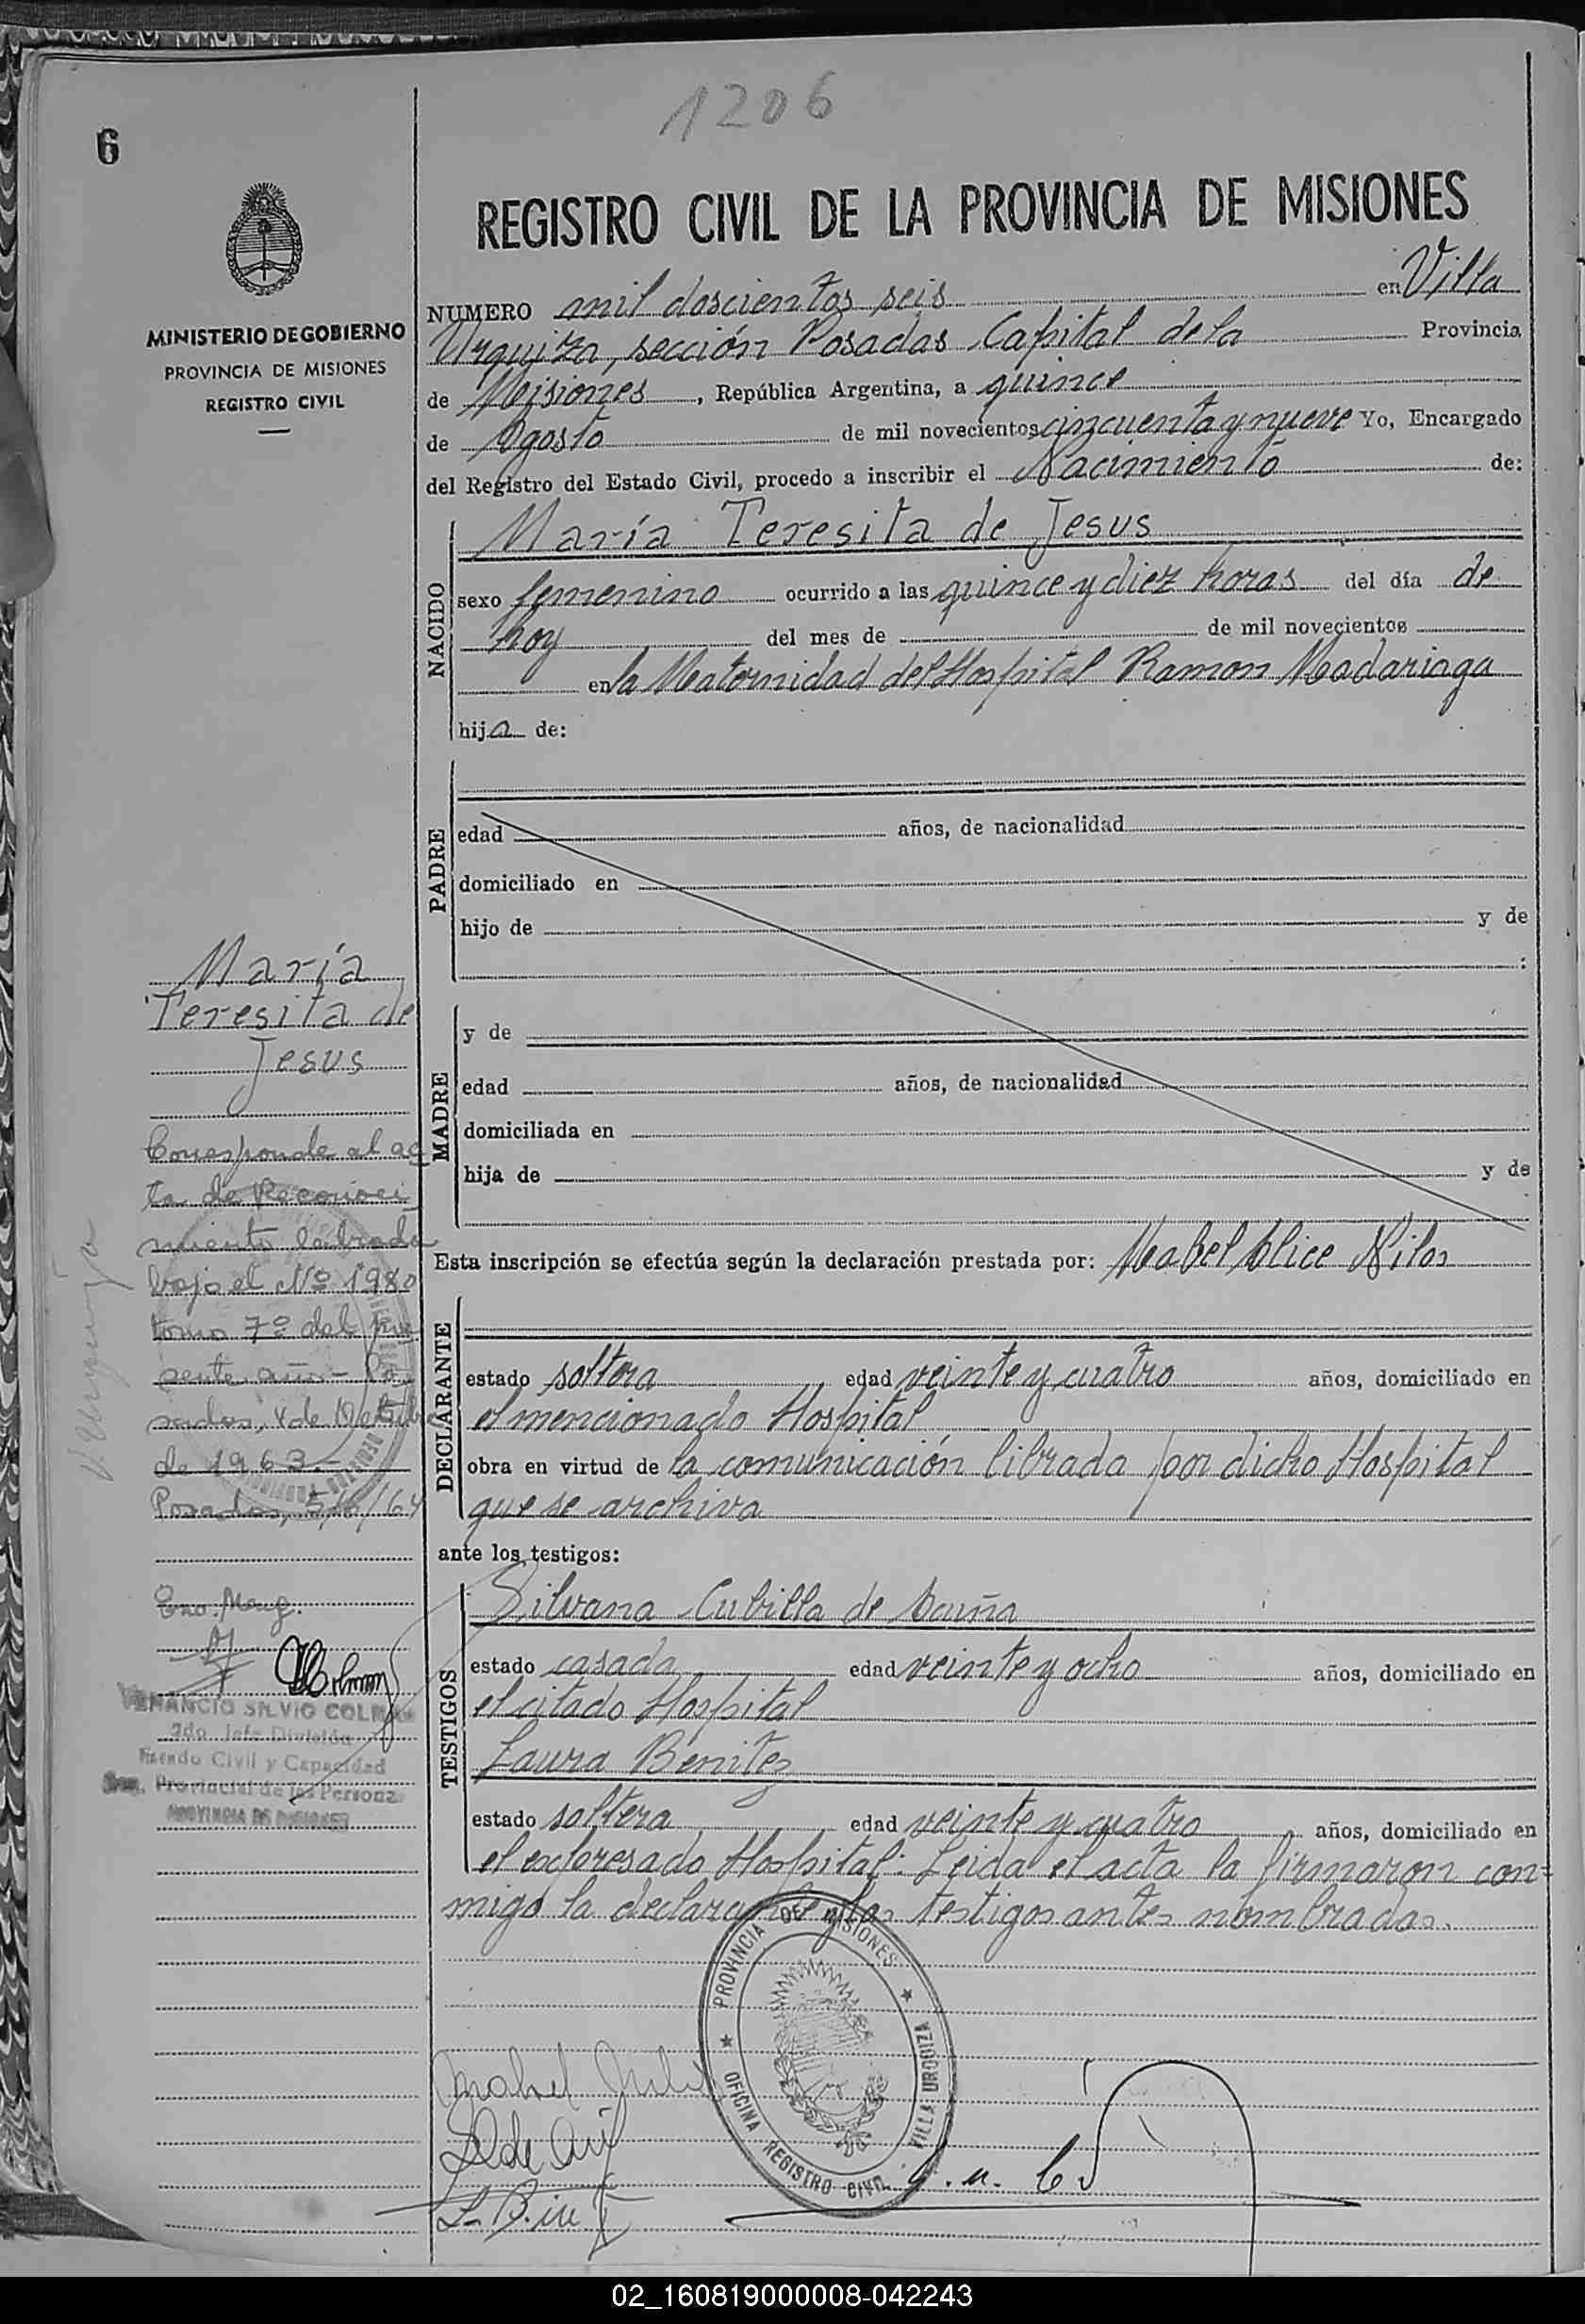 1206
6
REGISTRO CIVIL DE LA PROVINCIA DE MISIONES
MINISTERIO DE GOBIERNO
PROVINCIA DE MISIONES
REGISTRO CIVIL
NUMERO mil doscientos seis en Villa
Urquiza, sección Posadas Capital de la Provincia
de Misiones, República Argentina, a quince
de Agosto de mil novecientos cincuenta y nueve Yo, Encargado
del Registro del Estado Civil, procedo a inscribir el Nacimiento de:
NACIDO
María Teresita de Jesus
sexo femenino ocurrido a las quince y diez horas del día de
hoy del mes de de mil novecientos
en la Maternidad del Hospital Ramon Madariaga
hija de:
PADRE
edad años, de nacionalidad
domiciliado en
hijo de y de
:
MADRE
y de
edad años, de nacionalidad
domiciliada en
hija de y de
Esta inscripción se efectúa según la declaración prestada por: Mabel Alice Nilos
DECLARANTE
estado soltera edad veinte y cuatro años, domiciliado en
el mencionado Hospital
obra en virtud de la comunicación librada por dicho Hospital
que se archiva
ante los testigos:
TESTIGOS
Silvana Cubilla de Acuña
estado casada edad veinte y ocho años, domiciliado en
el citado Hospital
Laura Benitez
estado soltera edad veinte y cuatro años, domiciliado en
el expresado Hospital. Leida el acta la firmaron con=
migo la declarante y los testigos antes nombrados.
María
Teresita de
Jesus
Corresponde al ac
ta de Reconoci
miento labrada
bajo el Nº 1980
tomo 7º del pre
sente año.- Po
sadas, de
de 1963.-
Posadas, 5/6/64
VENANCIO SILVIO COLMAN
2do. Jefe División
Estado Civil y Capacidad
Provincial de las Personas
PROVINCIA DE MISIONES
PROVINCIA DE MISIONES
OFICINA REGISTRO CIVIL VILLA URQUIZA
02_160819000008-042243